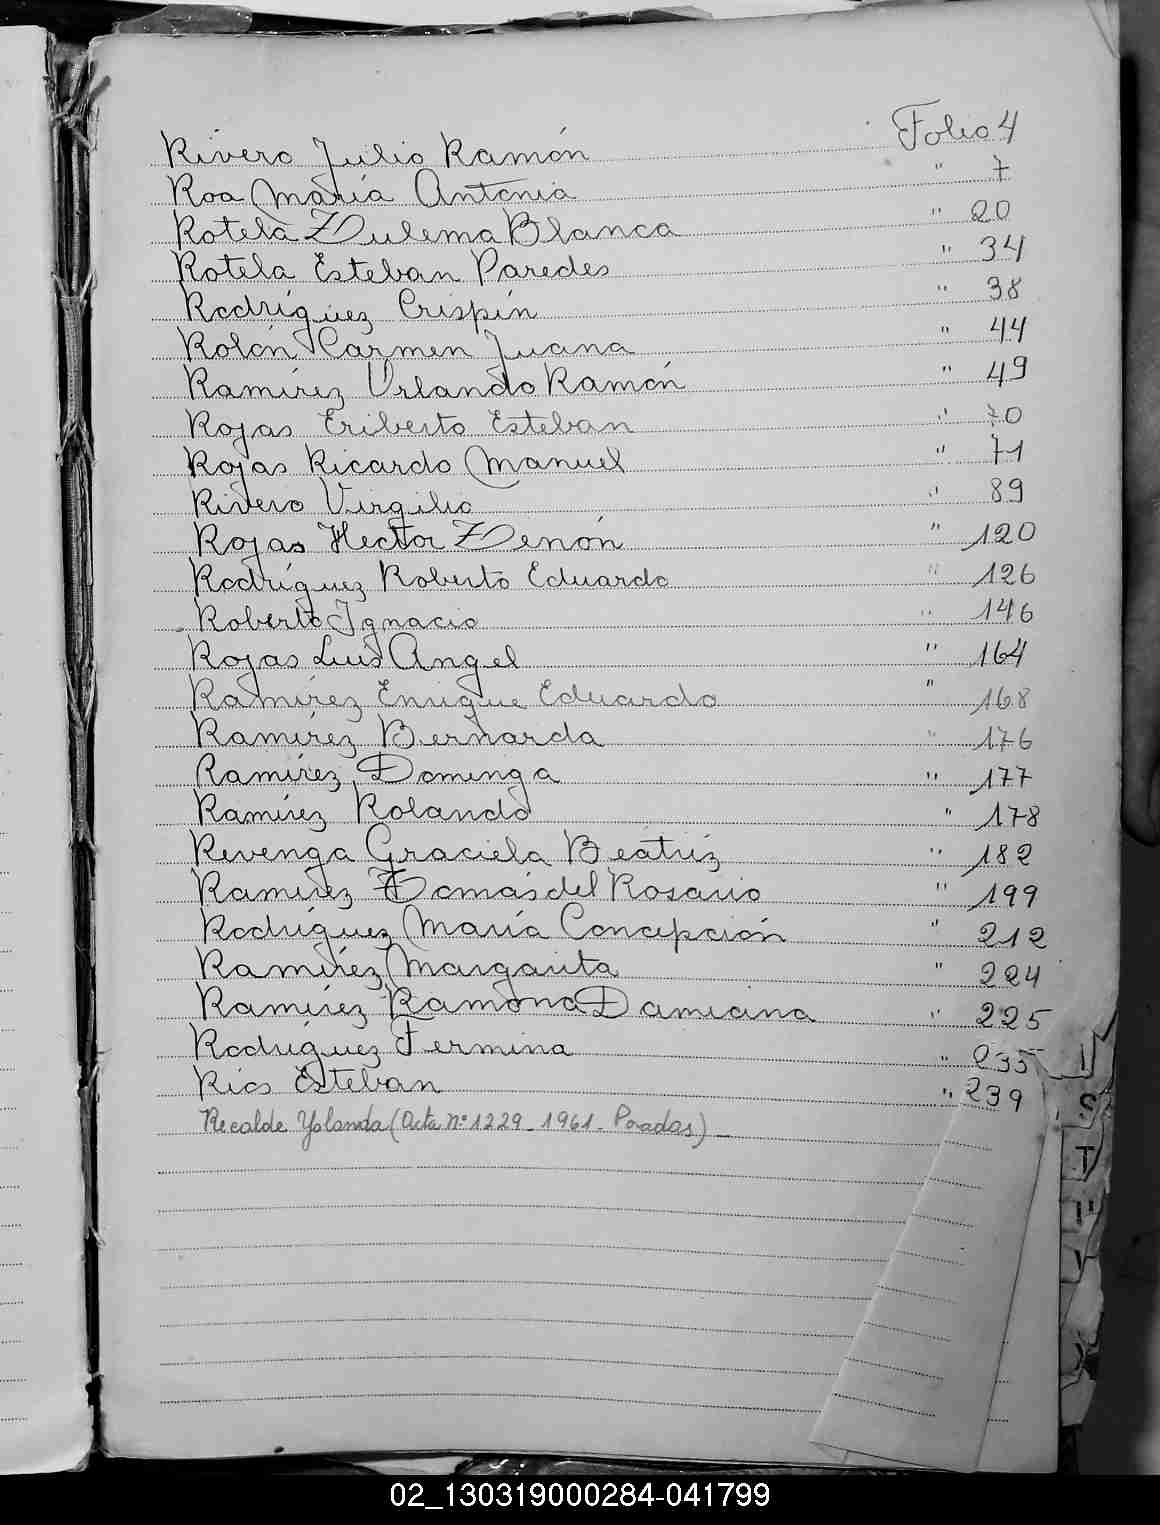 Rivero Julio Ramón Folio 4
Roa María Antonia " 7
Rotela Zulema Blanca " 20
Rotela Esteban Paredes " 34
Rodríguez Crispín " 38
Rolón Carmen Juana " 44
Ramírez Orlando Ramón " 49
Rojas Eriberto Esteban " 70
Rojas Ricardo Manuel " 71
Rivero Virgilio " 89
Rojas Hector Zenón " 120
Rodríguez Roberto Eduardo " 126
Roberto Ignacio " 146
Rojas Luis Angel " 164
Ramírez Enrique Eduardo " 168
Ramírez Bernarda " 176
Ramírez Dominga " 177
Ramírez Rolando " 178
Revenga Graciela Beatriz " 182
Ramírez Tomás del Rosario " 199
Rodríguez María Concepción " 212
Ramírez Margarita " 224
Ramírez Ramona Damiana " 225
Rodríguez Fermina " 235
Ríos Esteban " 239
Recalde Yolanda (Acta Nº 1229 - 1961 - Posadas) -
S
T
V
02_130319000284-041799